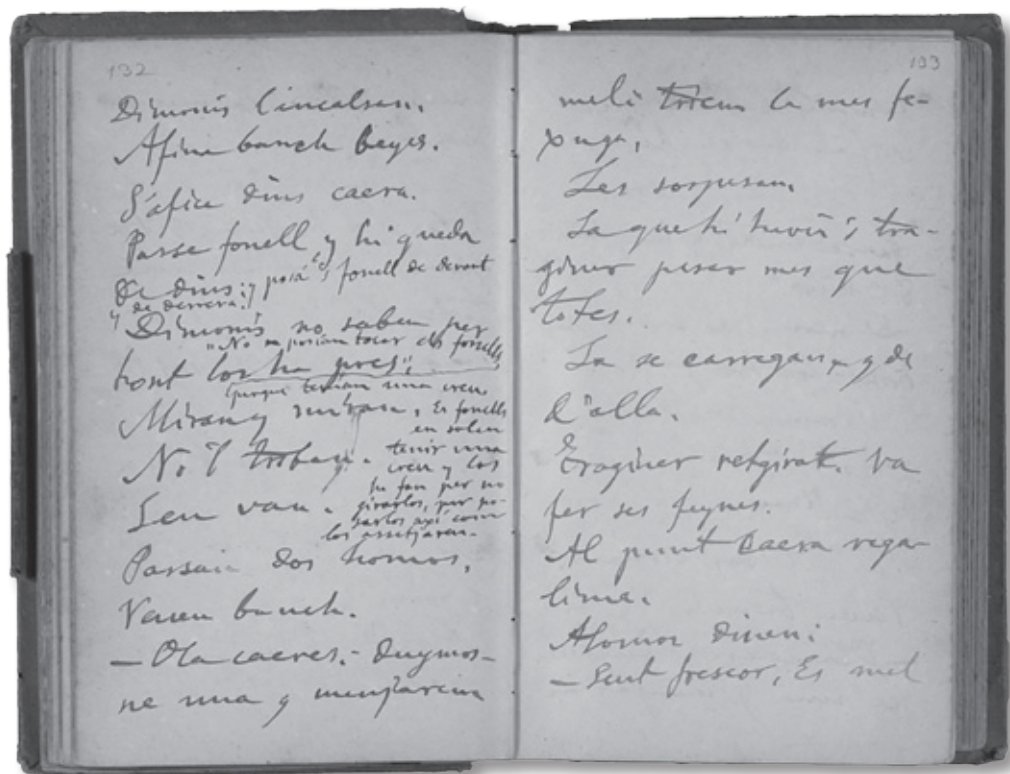 132
Dimonis l'incalsen.
Afina banch beyes.
S'afica dins caera.
Passe fonell y hi queda
de dins: y posá es fonell de devant
y de derrera.
Dimonis no saben per
"No en porian tocar els fonells,
hont los ha pres."
perque tenian una creu
Miran y miran. Es fonells
en solen
No'l troban. tenir una
creu y los
hu fan per no
Sen van. girarlos, per po-
sarlos axi com
los assitjaren.
Passan dos homos,
Veuen banch.
– Ola caeres. – Duymos-
ne una y menjarem
133
mel i trien la mes fe-
xuga.
Les sospesan.
La que hi havia's tra-
giner pesar mes que
totes.
La se carregan y de
d'alla.
Traginer retgirat. Va
fer ses feynes.
Al punt caera rega-
lima.
Alomon diuen:
– Sent frescor, Es mel